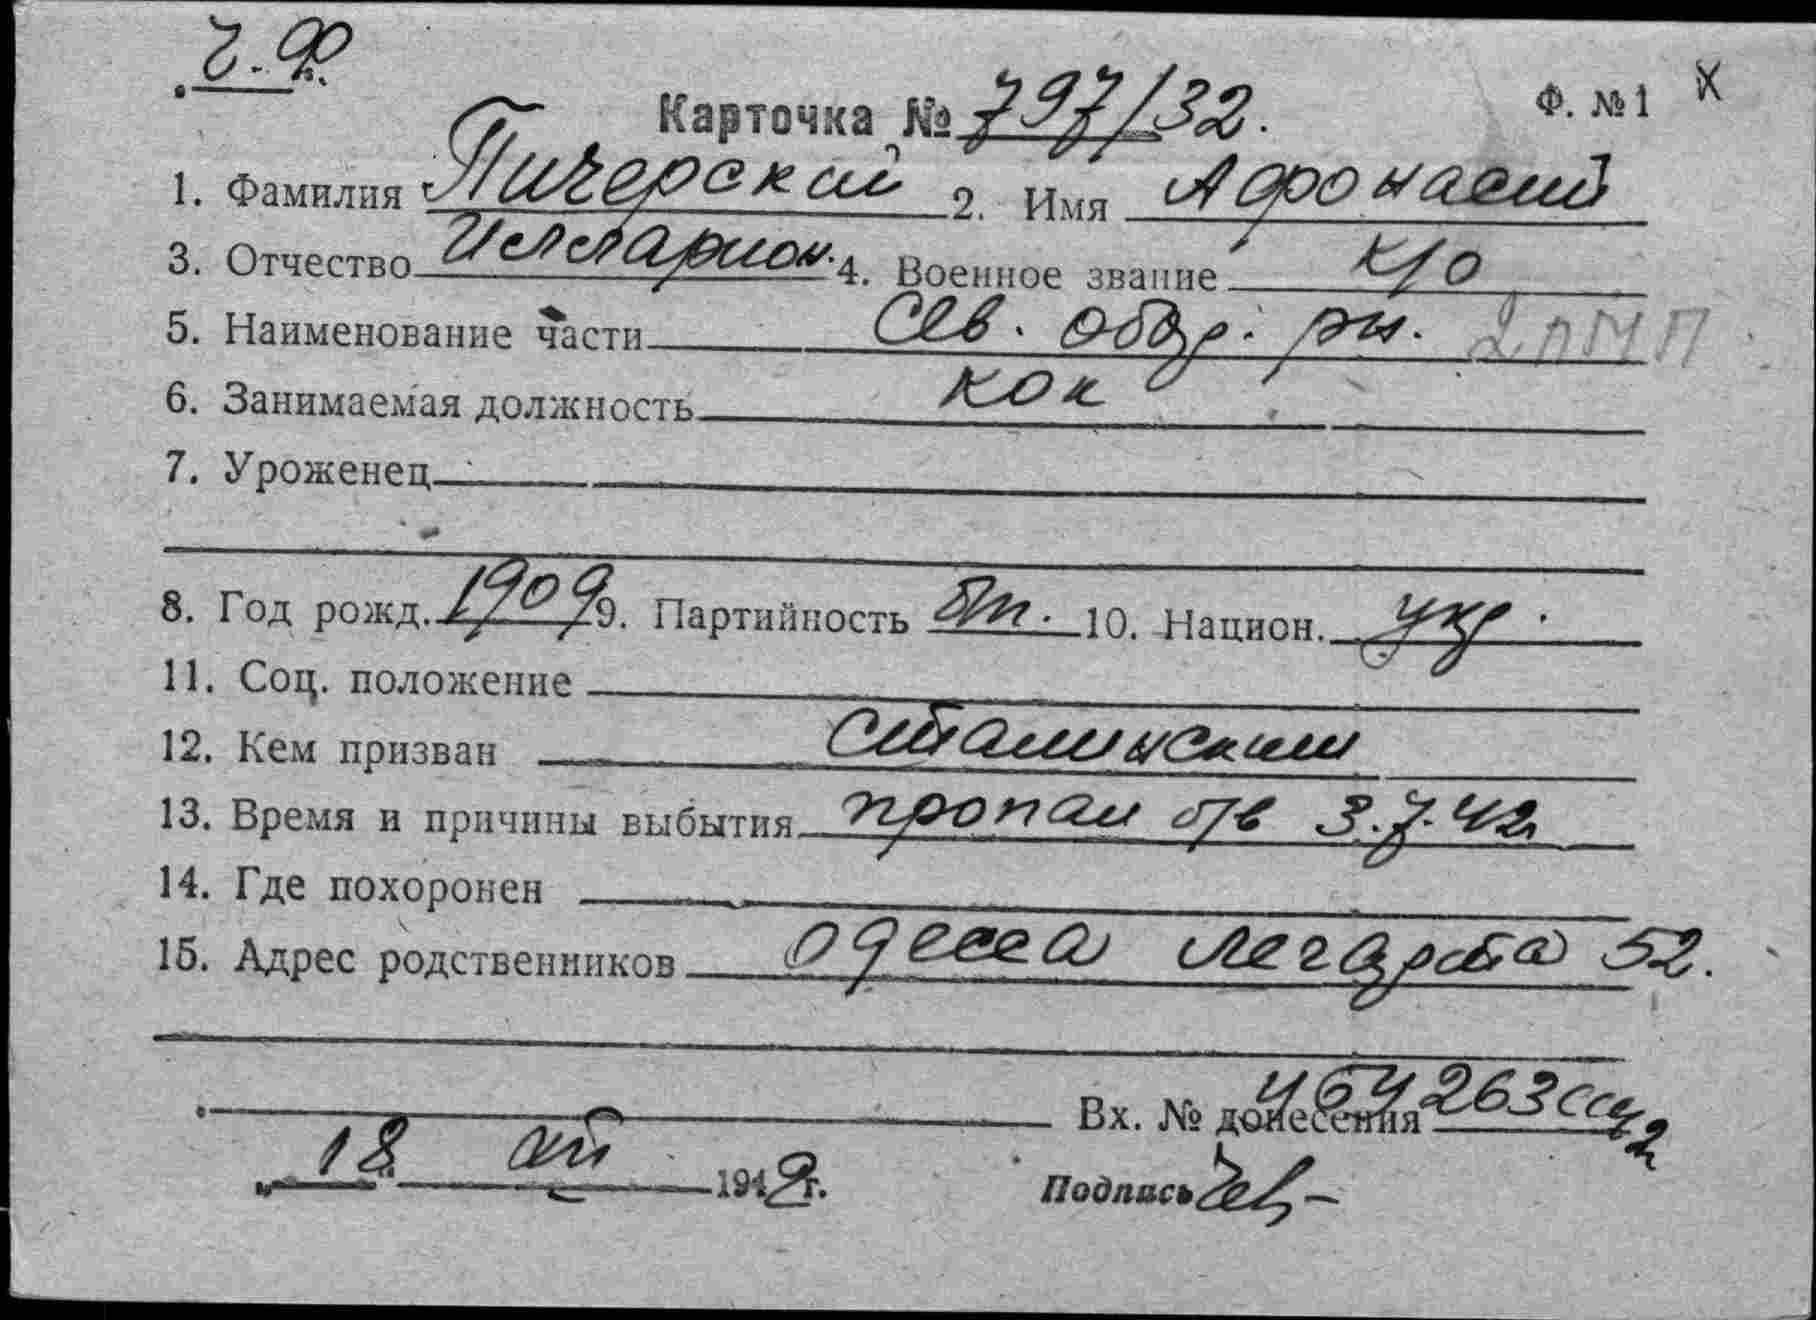 Ч. Ф.
Карточка № 797/32. Ф. № 1 X
1. Фамилия Пичерский 2. Имя Афонасий
3. Отчество Илларион. 4. Военное звание к/о
5. Наименование части Сев. обор. рн. 2 пМП
6. Занимаемая должность кок
7. Уроженец
8. Год рожд. 1909 9. Партийность б/п. 10. Национ. укр.
11. Соц. положение
12. Кем призван Сталинским
13. Время и причины выбытия пропал б/в 3.7.42г
14. Где похоронен
15. Адрес родственников Одесса 52.
Вх. № донесения 464263сс
„18“ 194 г.
Подпись